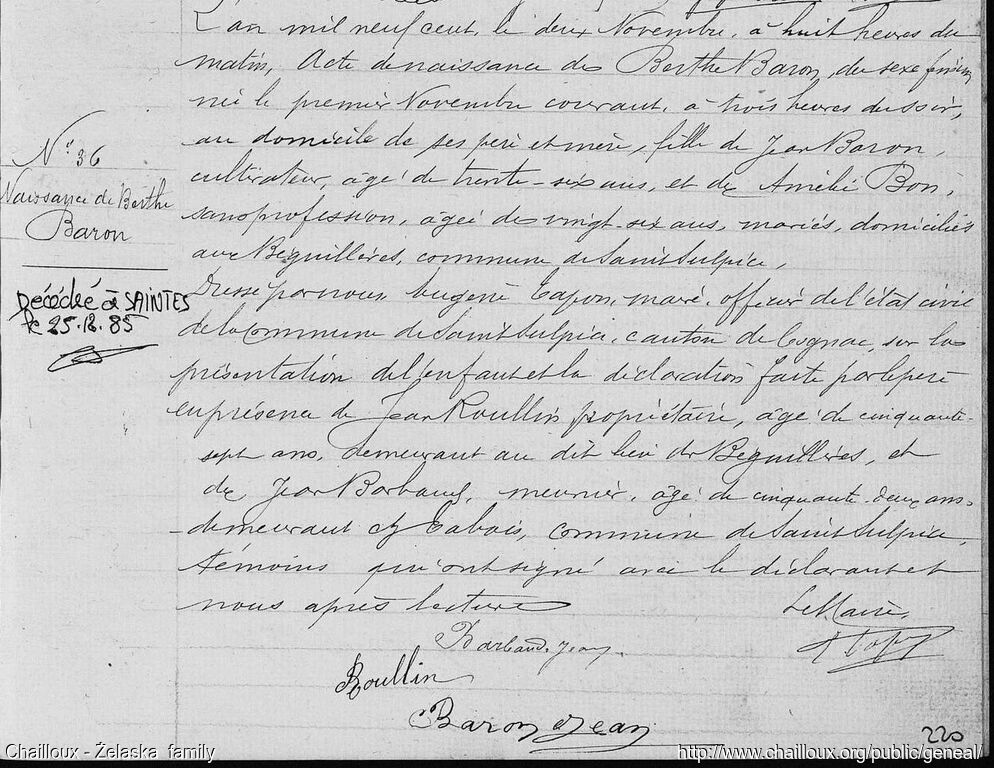 L'an mil neuf cent, le deux Novembre, à huit heures du
matin, Acte de naissance de Berthe Baron, du sexe féminin
née le premier Novembre courant, à trois heures du soir,
au domicile de ses père et mère, fille de Jean Baron,
cultivateur, âgé de trente-six ans, et de Amélie Bon,
sans profession, âgée de vingt-six ans, mariés, domiciliés
aux Béguillères, commune de Saint Sulpice,
Dressé par nous, Eugène Tapon, maire, officier de l'état civil
de la Commune de Saint Sulpice, canton de Cognac, sur la
présentation de l'enfant et la déclaration faite par le père
en présence de Jean Roullin propriétaire, âgé de cinquante-
sept ans, demeurant au dit lieu de Béguillères, et
de Jean Barbaud, meunier, âgé de cinquante-deux ans
demeurant Chez Tabois, commune de Saint Sulpice,
témoins qui ont signé avec le déclarant et
nous après lecture
N° 36
Naissance de Berthe
Baron
Décédée à SAINTES
le 25.12.85
Le Maire,
Barbaud Jean
Roullin
Baron Jean
220
Chailloux - Želaska family
http://www.chailloux.org/public/geneal/